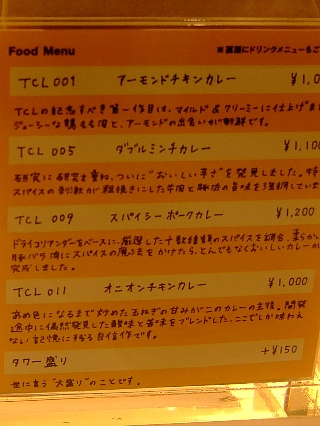 Food Menu ※裏面にドリンクメニューもご
TCL 001 アーモンドチキンカレー ¥1,0
TCLの記念すべき第一作目は、マイルド&クリーミーに仕上げま
ジューシーな鶏もも肉と、アーモンドの出会いが新鮮です。
TCL 005 ダブルミンチカレー ¥1,100
研究に研究を重ね、ついに"おいしい辛さ"を発見しました。特
スパイスの刺激が粗挽きにした牛肉と豚肉の旨味を
TCL 009 スパイシーポークカレー ¥1,200
ドライコリアンダーをベースに、厳選した十数種類のスパイスを調合。柔らか
豚バラ肉にスパイスの魔法をかけたら、とんでもなくおいしいカレーが
完成しました。
TCL 011 オニオンチキンカレー ¥1,000
あめ色になるまで炒めた玉ねぎの甘みがこのカレーの主役。開発
途中に偶然発見した酸味と苦味をブレンドした、ここでしか味わえ
ない記憶に残る自信作です。
タワー盛り +¥150
世に言う"大盛り"のことです。